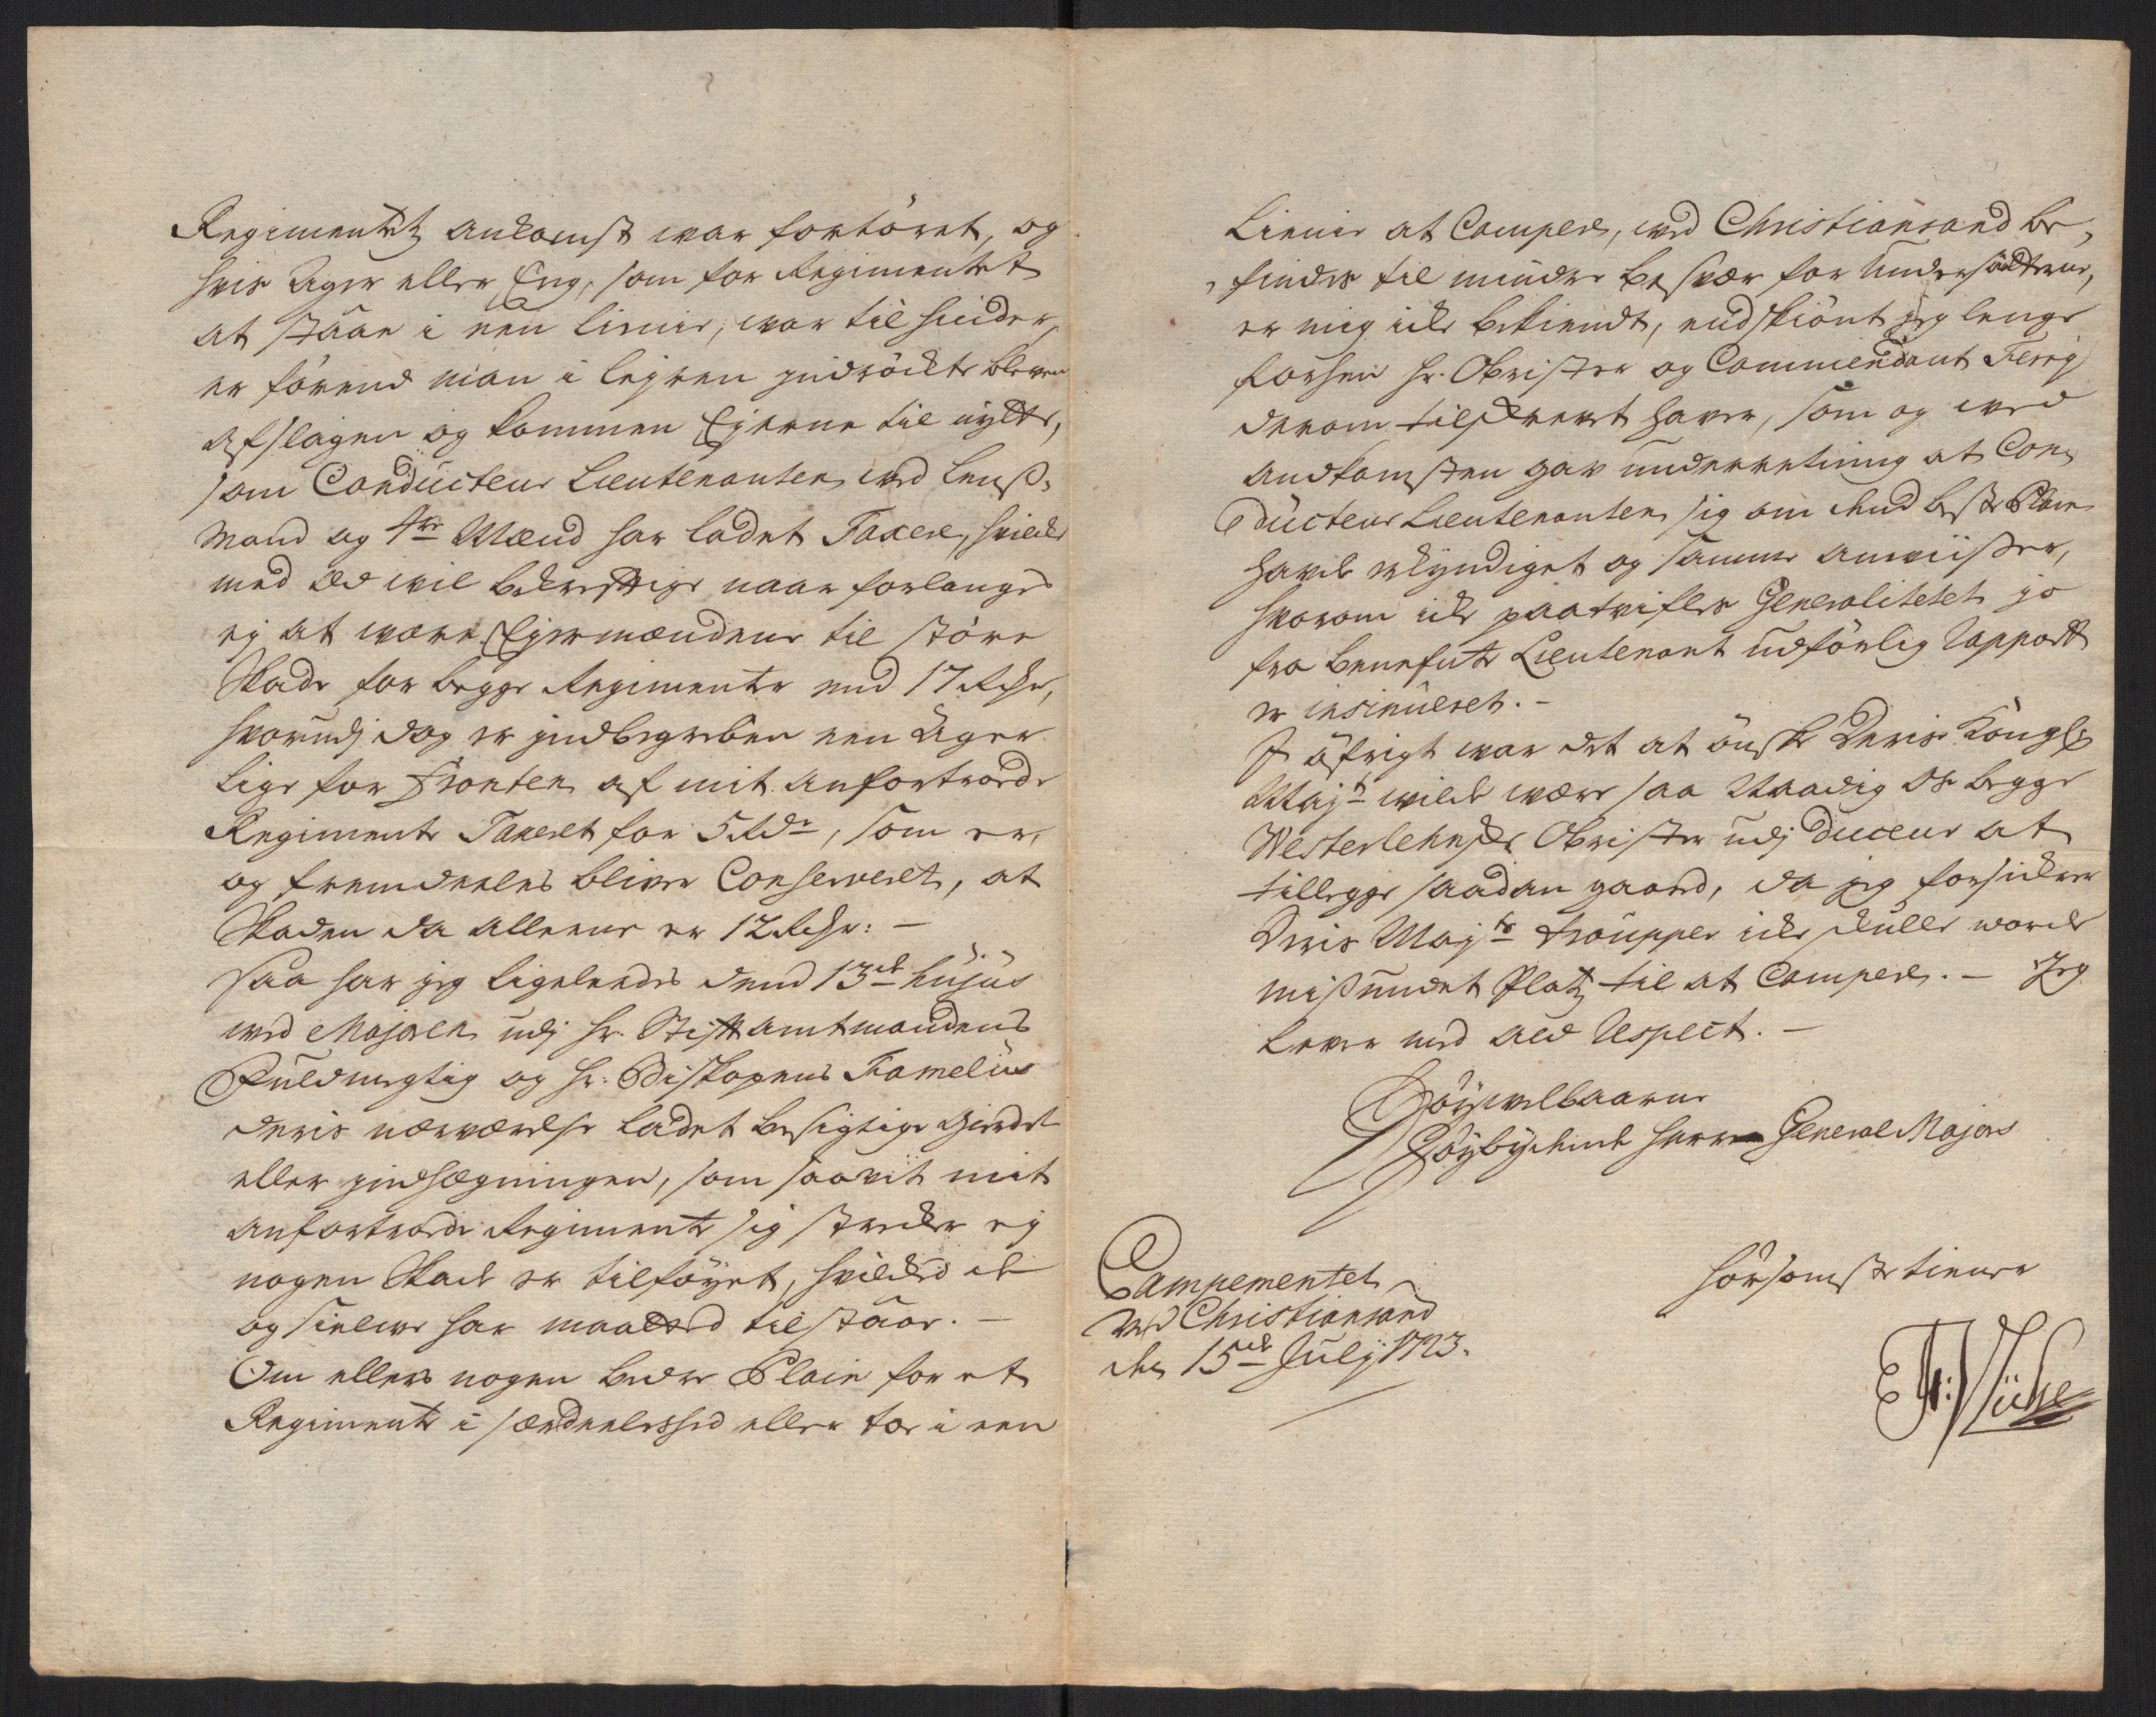 Regimentetz ankomst war fortöret, og
hvis Ager eller Eng, som for Regimentet
at stáae i een linie, war til hinder,
er förend man i leyren indröckte bleven
afslagen og kommen Eyerne til nytte,
som Conducteur Lieutenanten med lens-
mand og 4re Mænd har ladet Taxere, hvilcke
med Æd wil bekreftige naar forlanges
ey at være Eyermændene til störe
Skade for begge Regimenter end 17 Rdr,
hvorudj dog er indbegreben een Ager
lige for Fronten af mit anfortroede
Regimente Taxeret for 5 Rdr, som er,
og fremdeeles bliver Conserveret, at
Skaden da alleene er 12 Rdr: -
Saa har jeg ligeleedes dend 13de hujus
med Majoren udj Hr. Stiftamtmandens
Fuldmegtig og Hr. Biskopens Famelies
deris nærværelse ladet besigtige Gierdet
eller indhægningen, som saavit mit
anfortroede Regimente sig strecker ey
nogen Skade er tilföyet, hvilcked de
og sielver har maatted tilstáae. -
Om ellers nogen bedre Plaine for et
Regimente i særdeeleshed eller toe i een
Linnie at Campere, ved Christiansand be-
findes til mindre besvær for Undersaatterne,
er mig icke bekiendt, endskiönt jeg lenge
forhen Hr. Obrister og Commendant
derom tilskrevet haver, som og ved
andkomsten gav underretning at Con-
ducteur Lieutenanten sig om dend beste Plaine
havde erkyndiget og samme anviiste,
hvorom icke paatvifler Generalitetet jo
fra benefnte Lieutenant udförlig Rapport
er insinueret. -
I öfrigt war det at önske Deris Kongl:
Mayt wilde være saa Naadig de begge
Westerlehnske Obrister udj at
tillegge saadan gaard, da jeg forsickrer
Deris Mayts trouppes icke skulle worde
misundet Platz til at Campere. - Jeg
lever med ald Respect. -
Höywelbaarne
Höybydende Herre General Majors
hörsomste tienere
Campementet
ved Christiansand
den 15de July 1723.